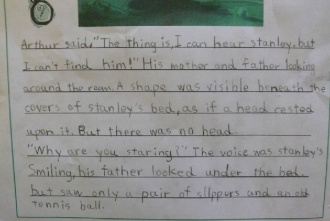 Arthur said,"The thing is, I can hear stanley, but
I can't find him!" His mother and father looking
around the room. A shape was visible beneath the
covers of stanley's bed, as if a head rested
upon it. But there was no head
"Why are you staring?" The voice was stanley's
Smiling, his father looked under the bed.
but saw only a pair of slippers and an old
tennis ball.